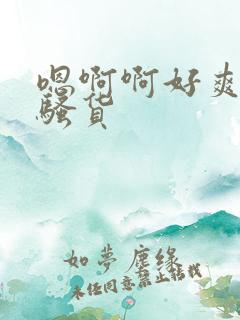 嗯啊啊好爽
骚货
如夢塵緣
未经同意禁止转载